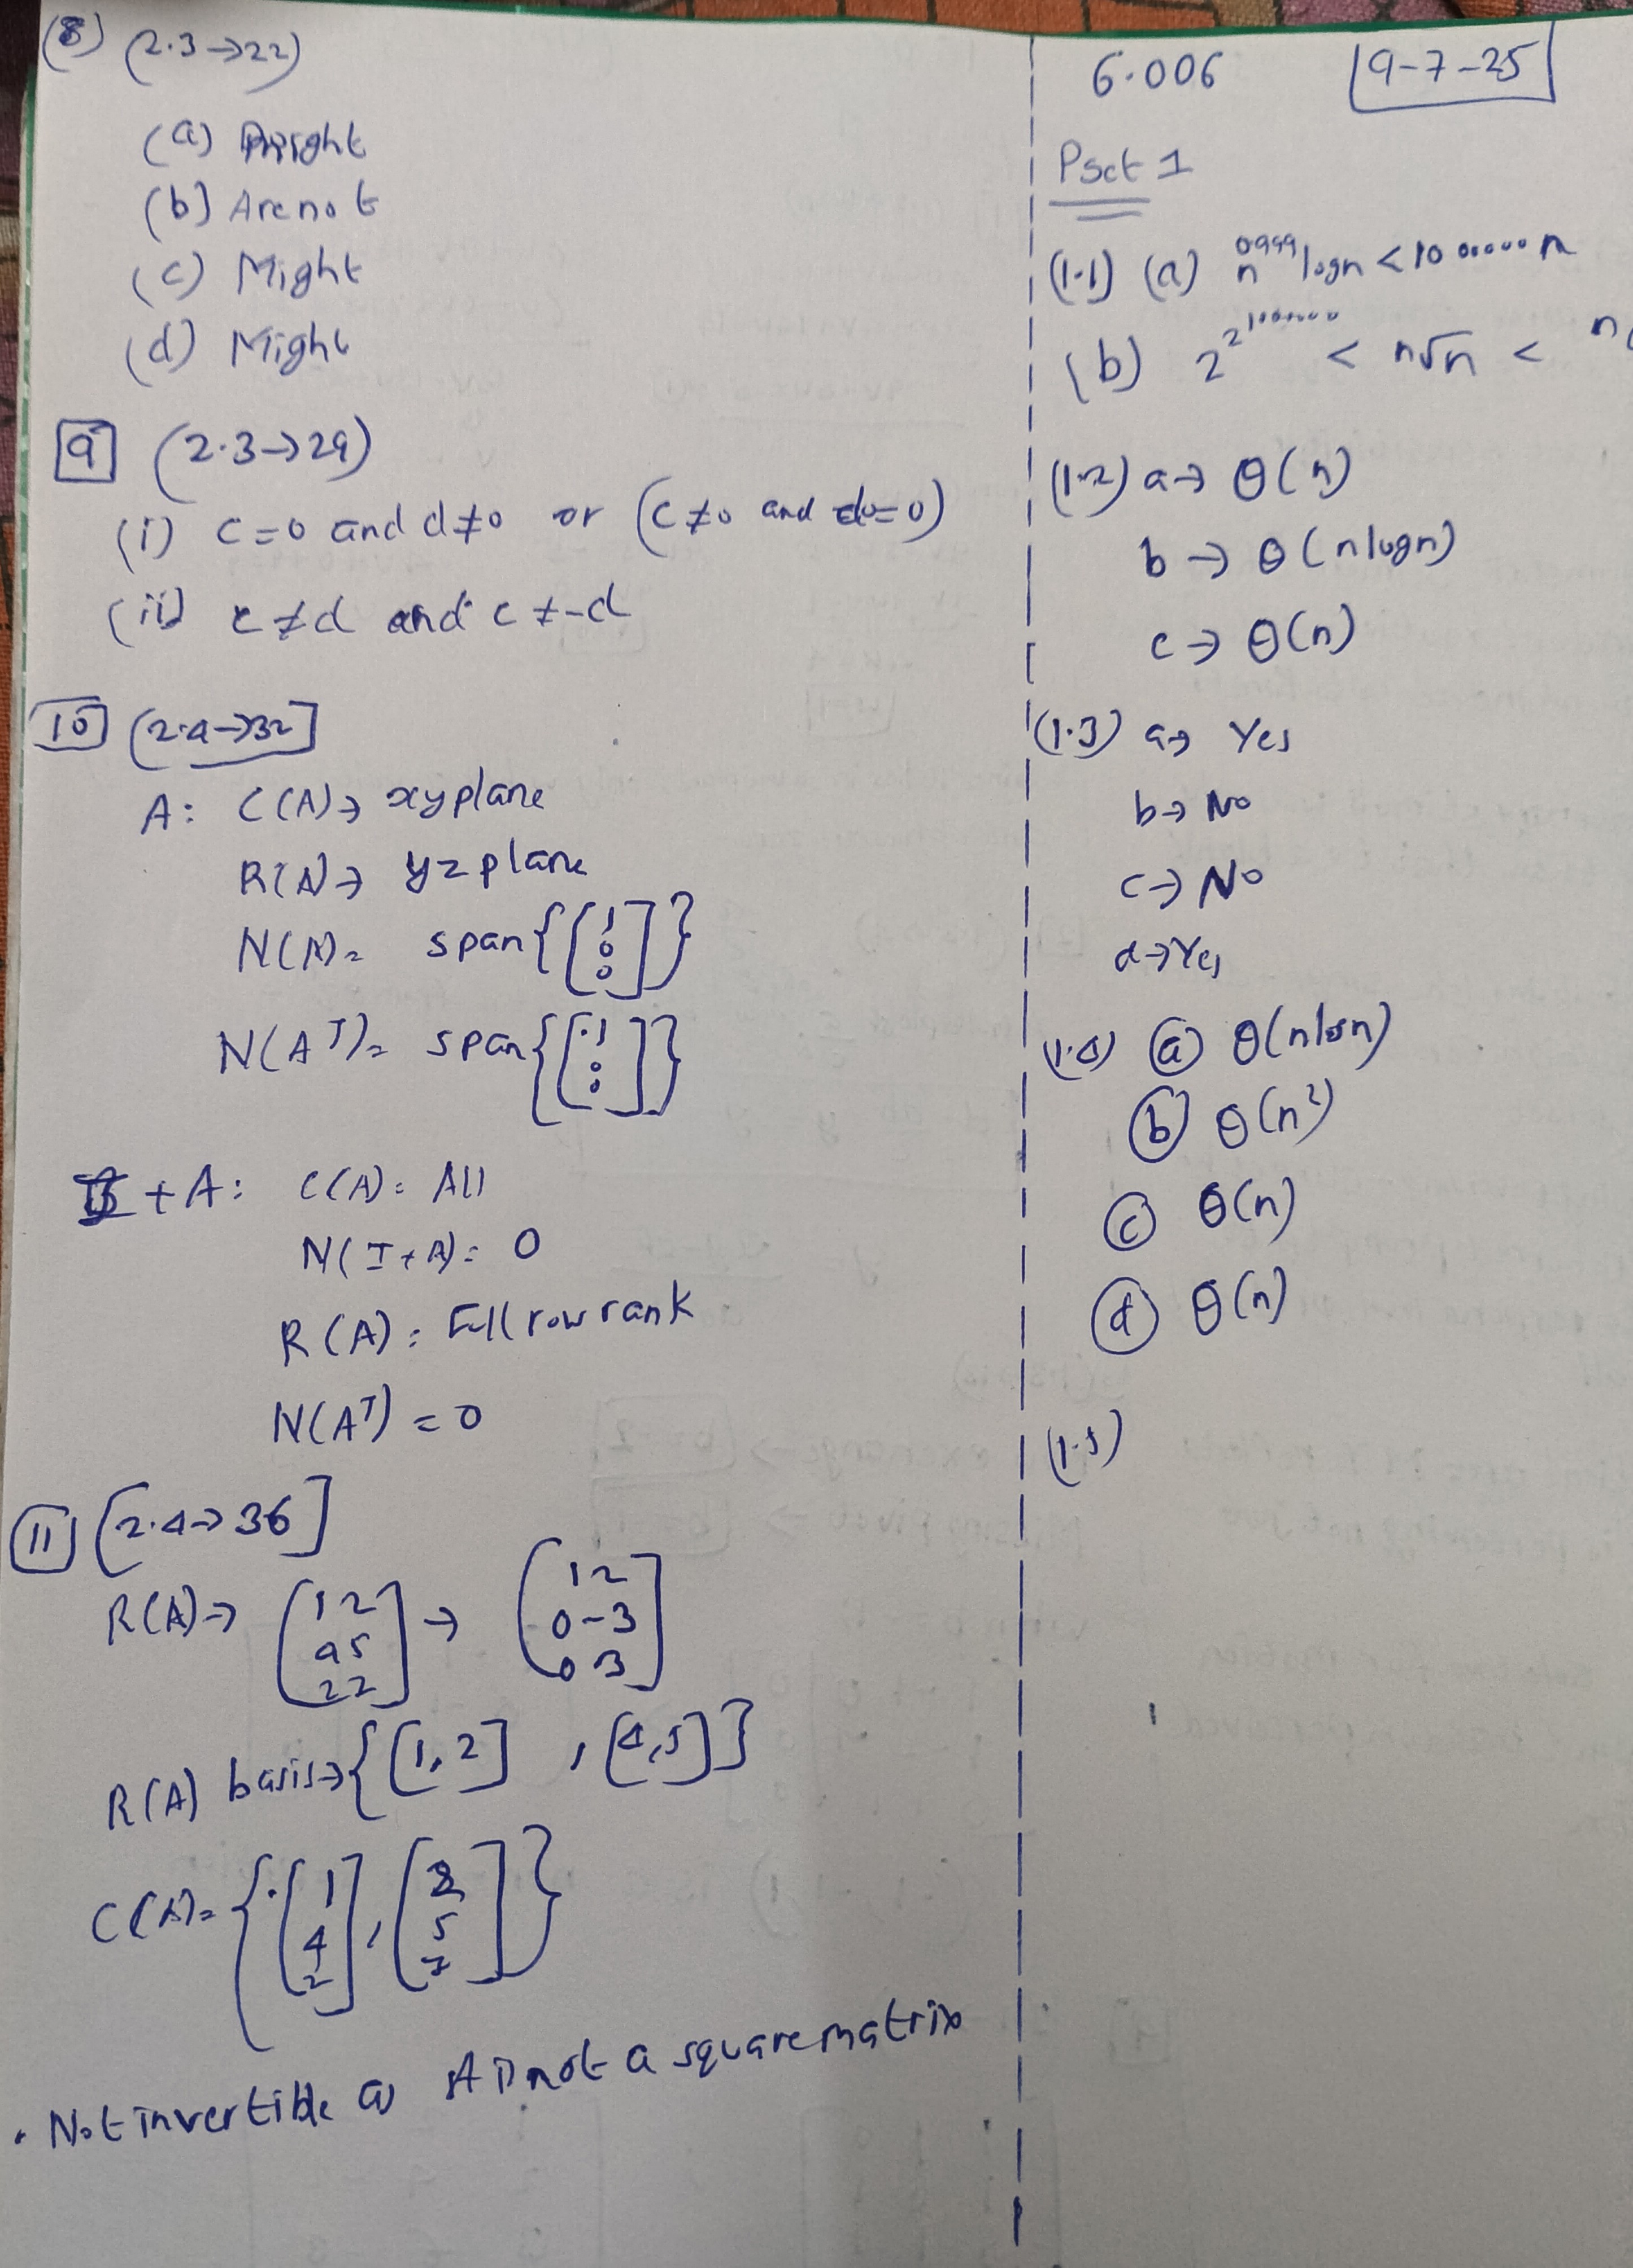 (8) (2.3→22)
(a) Might
(b) Are not
(c) Might
(d) Might
9 (2.3→29)
(i) c=0 and d≠0 or (c≠0 and d=0)
(ii) c≠d and c≠-d
10 (2.4→32]
A: C(A)→ xy plane
R(A)→ yz plane
N(A)= span{[1
0
0]}
N(Aᵀ)= span{[1
0
0]}
I+A: C(A)= All
N(I+A)= 0
R(A): Full row rank
N(Aᵀ)=0
11 [2.4→36]
R(A)→ [1 2
4 5
2 2] → [1 2
0 -3
0 3]
R(A) basis→{[1,2], [4,5]}
C(A)={[1
4
2], [2
5
7]}
. Not invertible as A is not a square matrix
6.006 9-7-25
Pset 1
(1.1) (a) n^0.999 log n < 10000000 n
(b) < n√n <
(1.2) a→ θ(n)
b→ θ(nlogn)
c→ θ(n)
(1.3) a→ Yes
b→ No
c→ No
d→Yes
(1.4) (a) θ(nlogn)
(b) θ(n²)
(c) θ(n)
(d) θ(n)
(1.5)